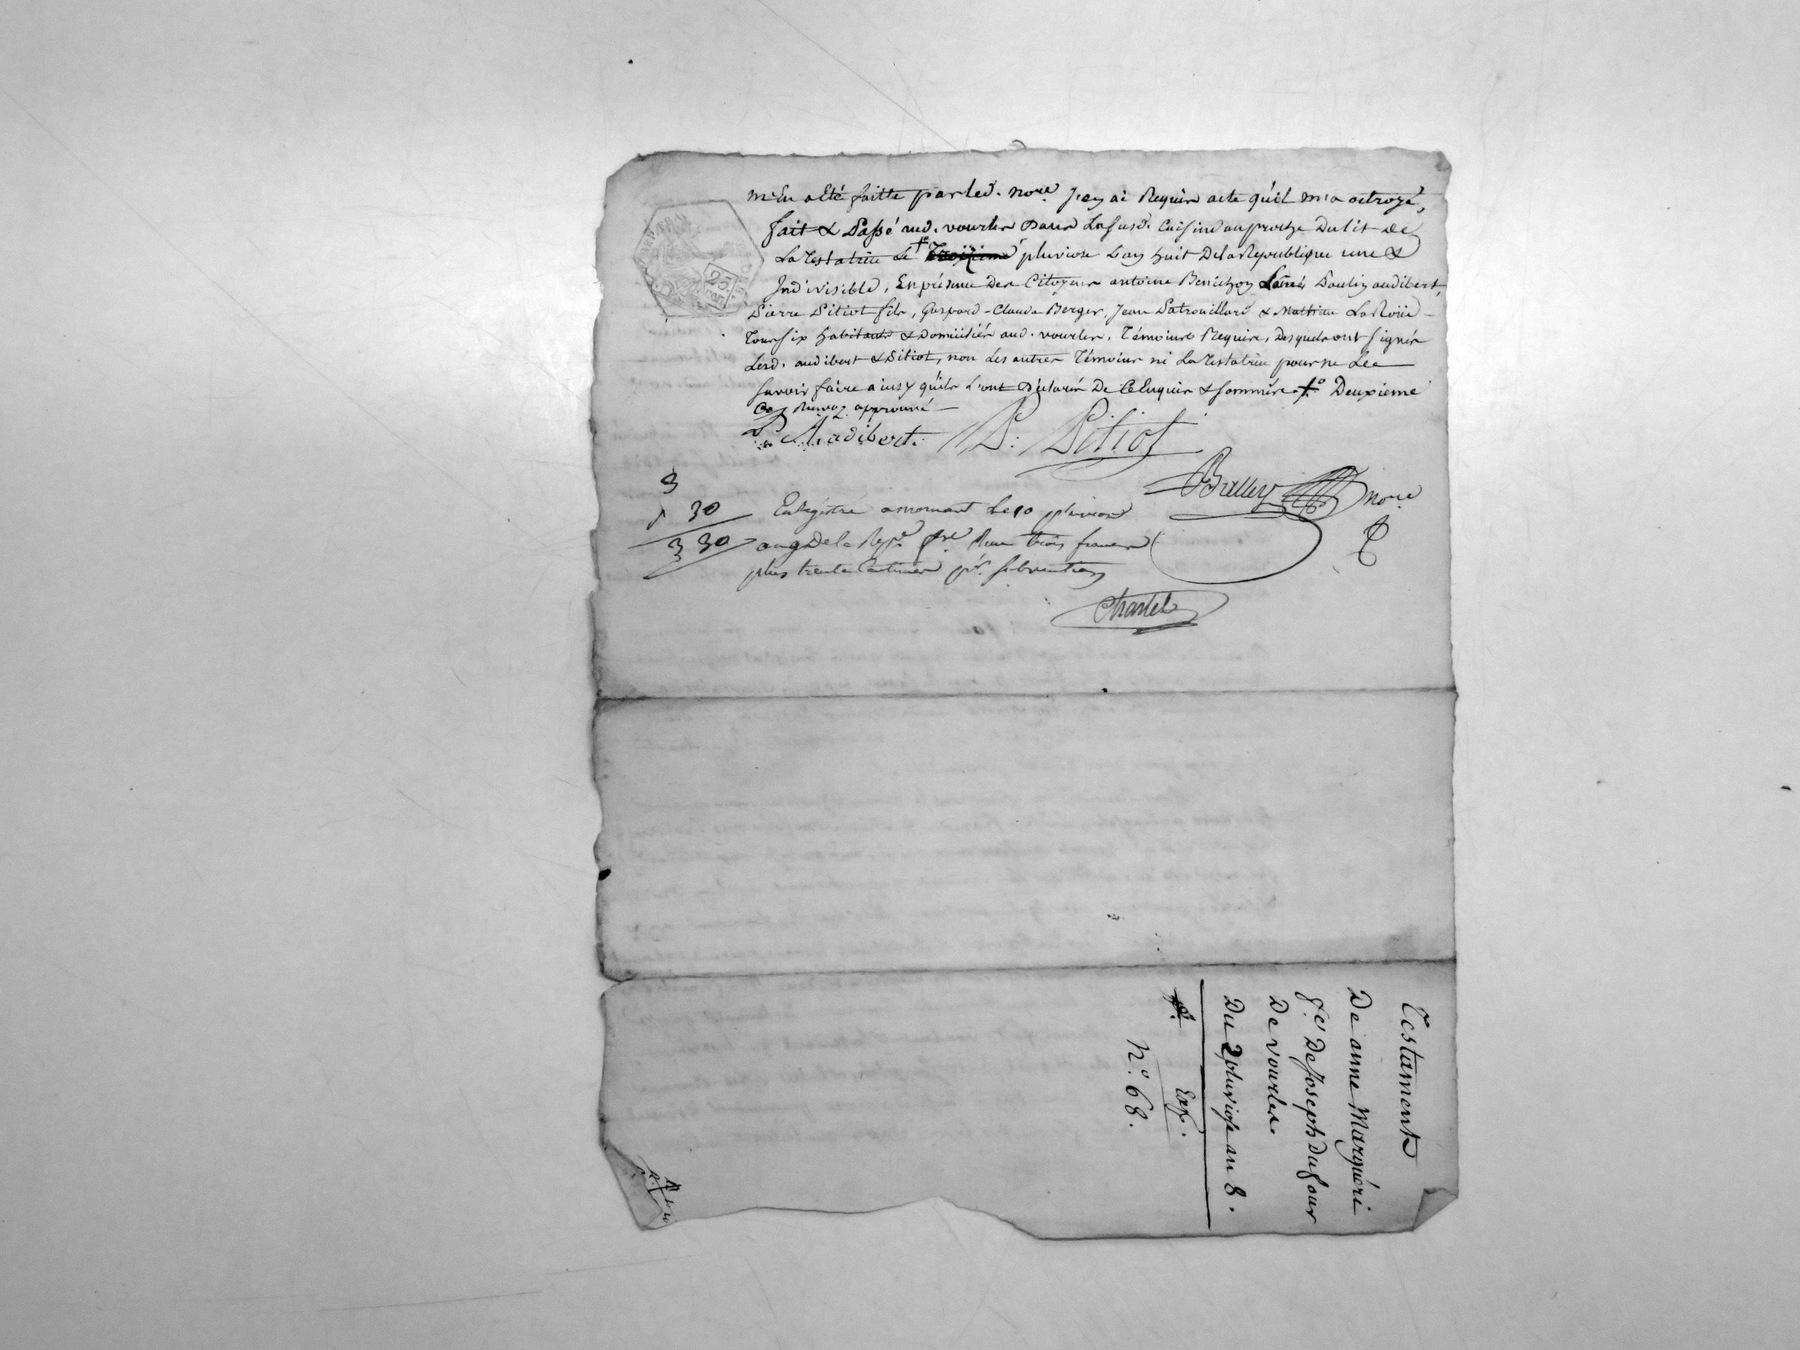 m'En a Eté faitte par led. nore. J'en ai Requis acte qu'il m'a octroyé,
fait & Passé aud. vourles Dans La susd. Cuisine au proche Du lit de
La Testatrice Le + troizieme pluviose L'an huit De la Republique une &
Indivisible, En présence Des Citoyens antoine Benichon Lainé, Paulin audibert,
Pierre Pitiot fils, Gaspard-Claude Berger, Jean Patrouillard & Mathieu La Roüe
Tous six habitants & Domiciliés aud. vourles, Témoins Requis, Desquels ont signés
Lesd. audibert & Pitiot, non Les autres Témoins ni La Testatrice pour ne Le
Savoir faire ainsy qu'ils L'ont Déclarés De Ce Enquis & Sommés. +° Deuxieme
Ce Renvoy approuvé
P. Audibert. P: Pitiot
nore
3
30
3 30
Enregistré a mornant le 10 pluviose
an 8 de la Repe. fse Reçu trois francs
plus trente Centimes pr. subvention
Chastel
25.
Testament
De anne Marguéri
fe. De Joseph Dufour
De vourles.
Du 2 pluviose an 8.
Exp.
N°. 68.